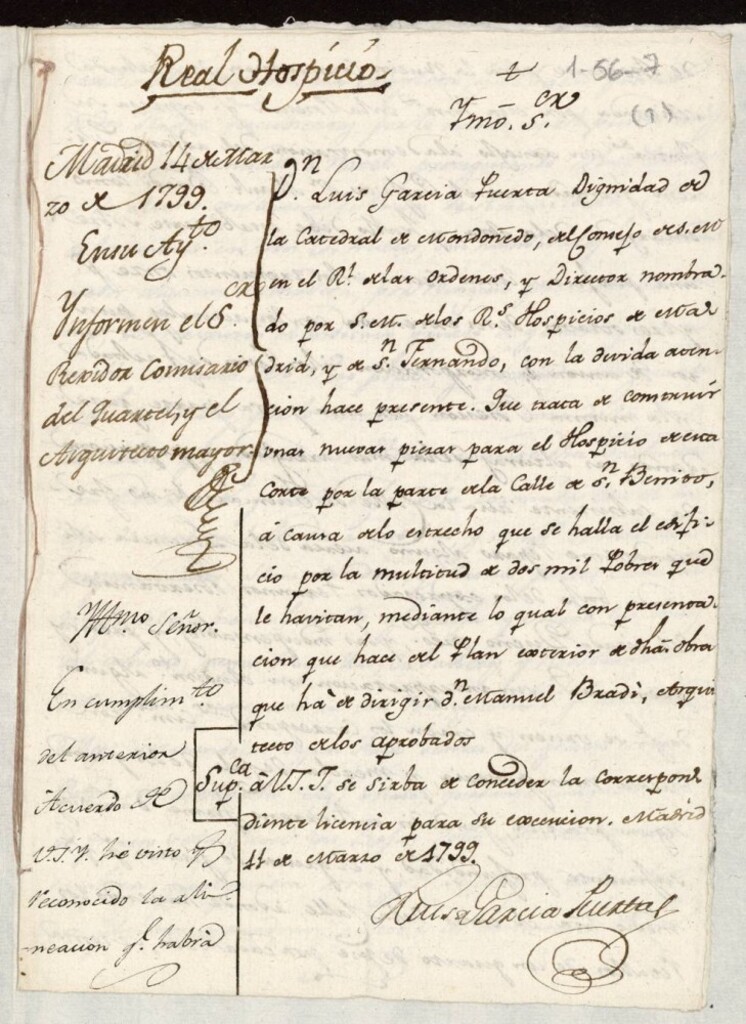 Real Hospicio
+
1-56-7
(1)
Ymõ. S.or
Madrid 14 de Mar
zo de 1799.
En su Ay.to
Ynformen el S.or
Rexidor Comisario
del Quartel, y el
Arquitecto mayor.
D.n Luis Garcia Puerta Dignidad de
la Catedral de Mondoñedo, del Consejo de S. M.
en el R.l de las Ordenes, y Director nombra-
do por S. M. de los R.s Hospicios de Ma
drid, y de S.n Fernando, con la devida aten-
cion hace presente. Que trata de construir
unas nuevas piezas para el Hospicio de esta
Corte por la parte de la Calle de S.n Benito,
á causa de lo estrecho que se halla el edifi-
cio por la multitud de dos mil Pobres que
le havitan, mediante lo qual con presenta-
cion que hace del Plan exterior de dha. obra
que ha de dirigir d.n Manuel Bradi, Arqui
tecto de los aprobados
Sup.ca á V.S.Y. se sirba de conceder la correspon
diente licencia para su execucion. Madrid
11 de Marzo de 1799.
Luis Garcia Puerta
Yll.mo Señor.
En cumplim.to
del anterior
Acuerdo de
V.S.Y. he visto y
reconocido la ali-
neacion q.e habrá